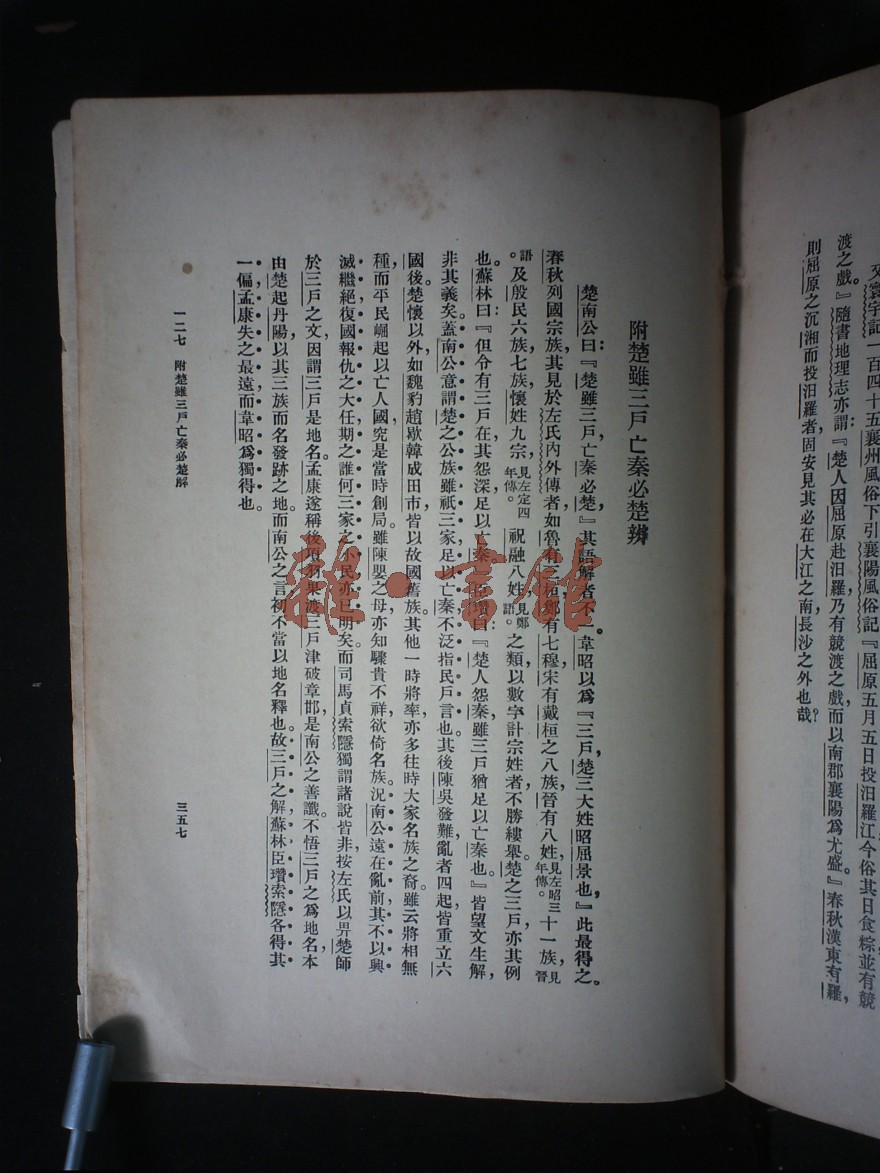 又寰宇記一百四十五襄州風俗下引襄陽風俗記『屈原五月五日投汨羅江今俗其日食粽並有競
渡之戲』隨書地理志亦謂『楚人因屈原赴汨羅乃有競渡之戲而以南郡襄陽爲尤盛』春秋漢東有羅，
則屈原之沉湘而投汨羅者固安見其必在大江之南長沙之外也哉？
附楚雖三戶亡秦必楚辨
楚南公曰：『楚雖三戶，亡秦必楚。』其語解者不一。韋昭以爲『三戶，楚三大姓昭屈景也』此最得之。
春秋列國宗族其見於左氏內外傳者如魯有三桓鄭有七穆宋有戴桓之八族晉有八姓，見左昭三年傳。十一族，見晉
語。及殷民六族七族懷姓九宗見左定四年傳。祝融八姓，見鄭語。之類以數字計宗姓者不勝縷舉。楚之三戶亦其例
也。蘇林曰：『但令有三戶在其怨深足以亡秦。』臣瓚曰：『楚人怨秦雖三戶猶足以亡秦也』皆望文生解，
非其義矣。蓋南公意謂楚之公族雖祇三家足以亡秦不泛指民戶言也。其後陳吳發難亂者四起皆重立六
國後。楚懷以外，如魏豹趙歇韓成田市，皆以故國舊族。其他一時將率亦多往時大家名族之裔雖云將相無
種而平民崛起以亡人國究是當時創局。雖陳嬰之母亦知驟貴不祥欲倚名族。況南公遠在亂前其不以興
滅繼絕復國報仇之大任期之誰何三家之小民亦已明矣。而司馬貞索隱獨謂諸說皆非按左氏以畀楚師
於三戶之文因謂三戶是地名。孟康遂稱後項羽果渡三戶津破章邯是南公之善讖。不悟三戶之爲地名本
由楚起丹陽以其三族而名發跡之地。而南公之言初不當以地名釋也。故三戶之解蘇林臣瓚索隱各得其
一偏孟康失之最遠而韋昭爲獨得也。
一二七　附楚雖三戶亡秦必楚解
三五七
龍·言館